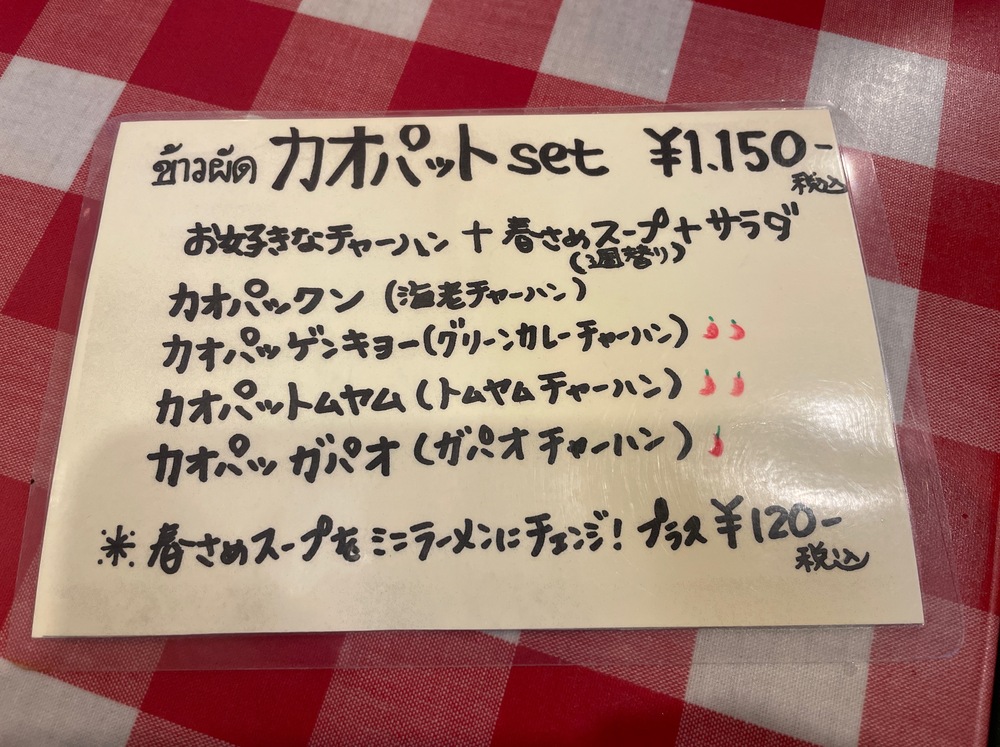 ข้าวผัด カオパット set ¥1.150-
税込
お好きなチャーハン + 春さめスープ + サラダ
(週替り)
カオパックン (海老チャーハン)
カオパッゲンキョー(グリーンカレーチャーハン)
カオパットムヤム (トムヤムチャーハン)
カオパッ ガパオ (ガパオチャーハン)
※ 春さめスープをミニラーメンにチェンジ! プラス ¥120-
税込